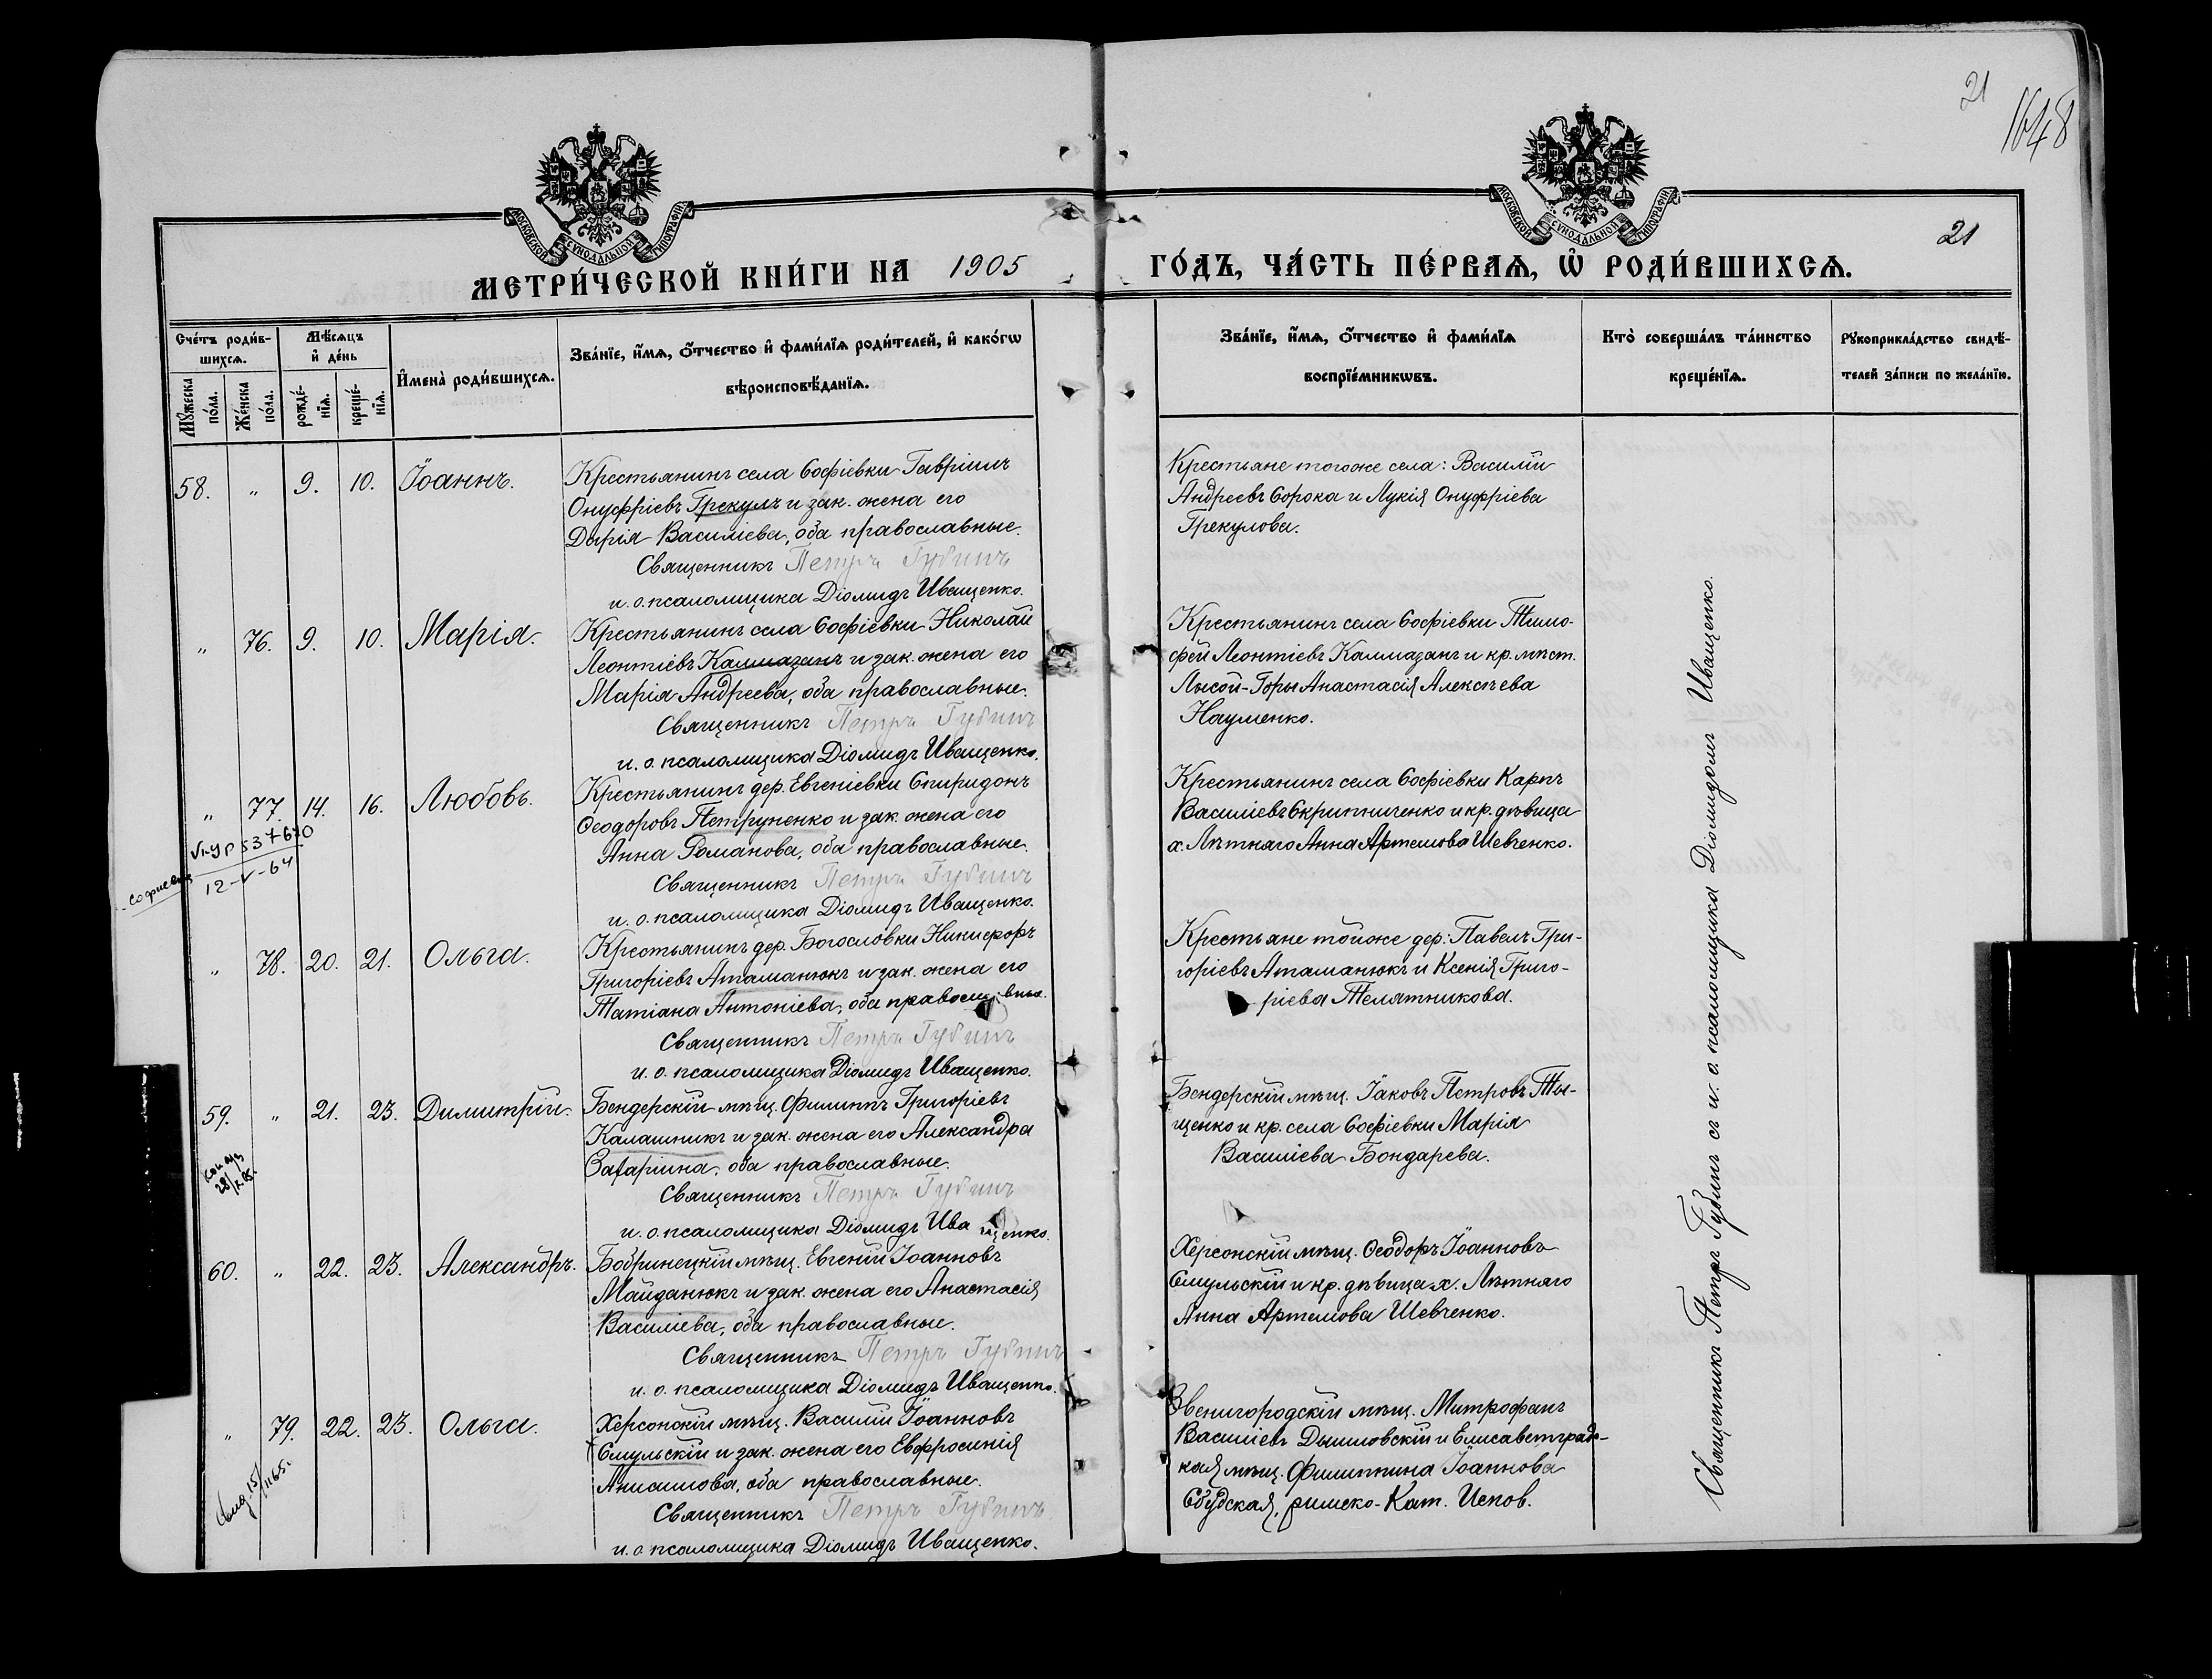 21
1648
МОСКОВСКОЙ СѴНОДАЛЬНОЙ ТИПОГРАФІИ
МОСКОВСКОЙ СѴНОДАЛЬНОЙ ТИПОГРАФІИ
21
МЕТРИ́ЧЕСКОЙ КНИ́ГИ НА 1905 ГО́ДЪ, ЧА́СТЬ ПЕ́РВАѦ, Ѡ҆ РОДИ́ВШИХСѦ.
Сче́тъ роди́в-
шихсѧ.
Мꙋ́жеска
по́ла.
Же́нска
по́ла.
Мѣ́сѧцъ
и҆ де́нь
рожде́-
нїѧ.
креще́-
нїѧ.
И҆мена̀ роди́вшихсѧ.
Зва́нїе, и҆́мѧ, ѻ҆́тчество и҆ фами́лїѧ роди́телей, и҆ како́гѡ
вѣроисповѣ́данїѧ.
Зва́нїе, и҆́мѧ, ѻ҆́тчество и҆ фами́лїѧ
воспрїе́мникѡвъ.
Кто̀ соверша́лъ та́инство
креще́нїѧ.
Рꙋкоприкла́дство свидѣ́-
телей за́писи по жела́нїю.
58. " 9. 10. Іоаннъ.
Крестьянинъ села Софіевки Гавріилъ
Онуфріевъ Грекулъ и зак. жена его
Дарія Василіева, оба православные.
Священникъ Петръ Губинъ
и. о. псаломщика Діомидъ Иващенко.
Крестьяне тогоже села: Василій
Андреевъ Сорока и Лукія Онуфріева
Грекулова.
" 76. 9. 10. Марія.
Крестьянинъ села Софіевки Николай
Леонтіевъ Калмазанъ и зак. жена его
Марія Андреева, оба православные.
Священникъ Петръ Губинъ
и. о. псаломщика Діомидъ Иващенко.
Крестьянинъ села Софіевки Тимо-
фей Леонтіевъ Калмазанъ и кр. мѣст.
Лысой-Горы Анастасія Алексѣева
Науменко.
" 77. 14. 16. Любовь.
537670
12-V-64
софиевка
Крестьянинъ дер. Евгеніевки Спиридонъ
Ѳеодоровъ Петруненко и зак. жена его
Анна Романова, оба православные.
Священникъ Петръ Губинъ
и. о. псаломщика Діомидъ Иващенко.
Крестьянинъ села Софіевки Карпъ
Василіевъ Скрипниченко и кр. дѣвица
х. Лѣтняго Анна Артемова Шевченко.
" 78. 20. 21. Ольга.
Крестьянинъ дер. Богословки Никифоръ
Григоріевъ Атаманюкъ и зак. жена его
Татіана Антоніева, оба православные.
Священникъ Петръ Губинъ
и. о. псаломщика Діомидъ Иващенко.
Крестьяне тойже дер.: Павелъ Гри-
горіевъ Атаманюкъ и Ксенія Григо-
ріева Телятникова.
59. " 21. 23. Димитрій.
Бендерскій мѣщ. Филиппъ Григоріевъ
Калашникъ и зак. жена его Александра
Захаріина, оба православные.
Священникъ Петръ Губинъ
и. о. псаломщика Діомидъ Иващенко.
Бендерскій мѣщ. Іаковъ Петровъ Ты-
щенко и кр. села Софіевки Марія
Василіева Бондарева.
60. " 22. 23. Александръ.
Бобринецкій мѣщ. Евгеній Іоанновъ
Майданюкъ и зак. жена его Анастасія
Василіева, оба православные.
Священникъ Петръ Губинъ
и. о. псаломщика Діомидъ Иващенко.
Херсонскій мѣщ. Ѳеодоръ Іоанновъ
Смульскій и кр. дѣвица х. Лѣтняго
Анна Артемова Шевченко.
" 79. 22. 23. Ольга.
Херсонскій мѣщ. Василій Іоанновъ
Смульскій и зак. жена его Евфросинія
Анисимова, оба православные.
Священникъ Петръ Губинъ
и. о. псаломщика Діомидъ Иващенко.
Звенигородскій мѣщ. Митрофанъ
Василіевъ Дышловскій и Елисаветград-
кая мѣщ. Филиппина Іоаннова
Сбудская, римско-Кат. Испов.
Священникъ Петръ Губинъ съ и. о. псаломщика Діомидомъ Иващенко.